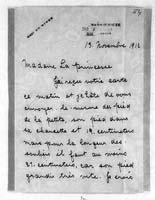 19. Novembre 1912
Madame La Princesse
J'ai reçu votre carte
ce matin et je hâte de vous
envoyer le mesure des pied
de la petite, son pied dans
sa chaussette a 19. centimètres
mais pour la longeur des
souliers il faut au moins
21. centimètres, car son pied
grandis très vite. Je crois